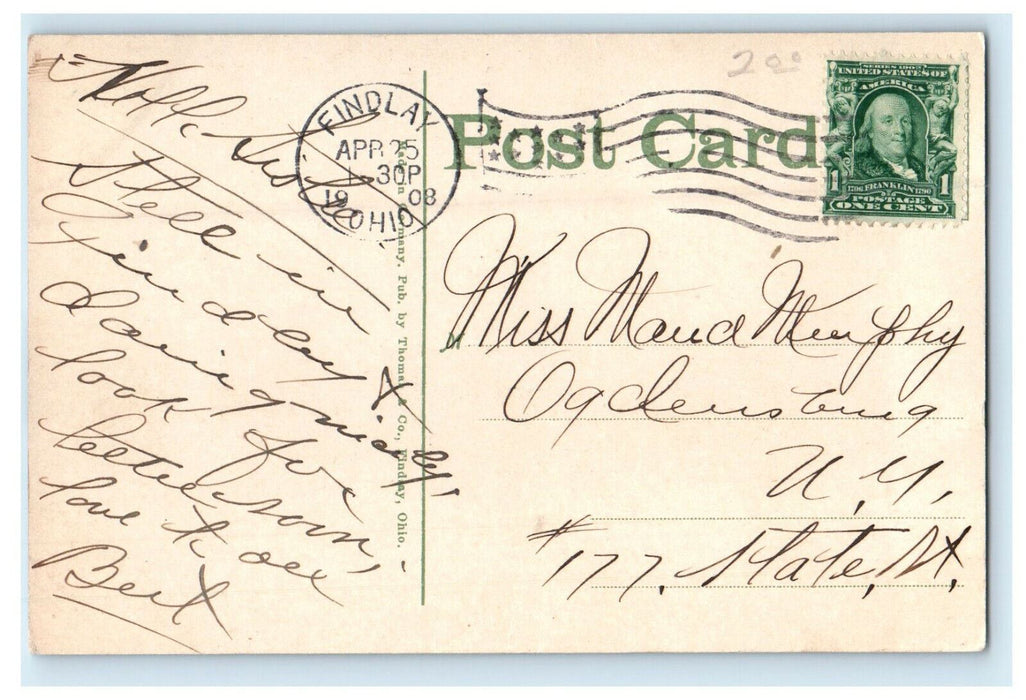 Hello Sister
Still in
Findlay &
doing nicely.
look for
letter soon,
love to all
Bert
Made in Germany. Pub. by Thomas & Co., Findlay, Ohio.
FINDLAY
APR 25
1-30P
1908
OHIO
Post Card
200
SERIES 1902
UNITED STATES OF
AMERICA
1706 FRANKLIN 1790
1 1
POSTAGE
ONE CENT
Miss Maud Murphy
Ogdensburg
N. Y.
#177. State. St.